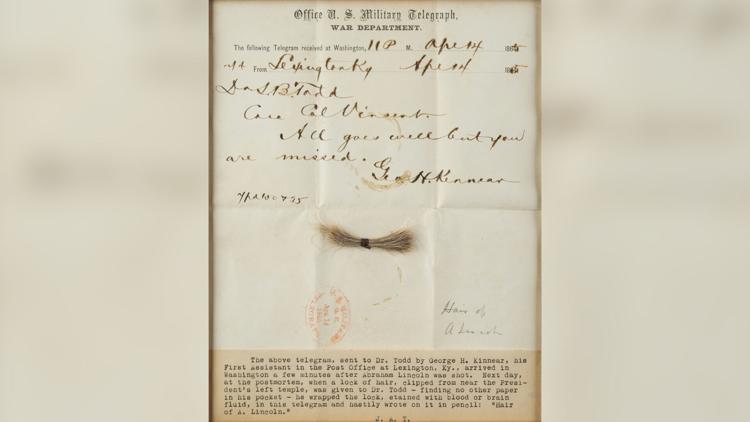 Office U. S. Military Telegraph,
WAR DEPARTMENT.
The following Telegram received at Washington, 11 P M. Apr 14 1865
From Lexington Ky Apr 14 1865
Dr L. B. Todd
Care Col Vincent.
All goes well but you
are missed.
Geo H. Kinnear
Hair of
A Lincoln
The above telegram, sent to Dr. Todd by George H. Kinnear, his
First Assistant in the Post Office at Lexington, Ky., arrived in
Washington a few minutes after Abraham Lincoln was shot. Next day,
at the postmortem, when a lock of hair, clipped from near the Presi-
dent's left temple, was given to Dr. Todd - finding no other paper
in his pocket - he wrapped the lock, stained with blood or brain
fluid, in this telegram and hastily wrote on it in pencil: "Hair
of A. Lincoln."
J. A. T.